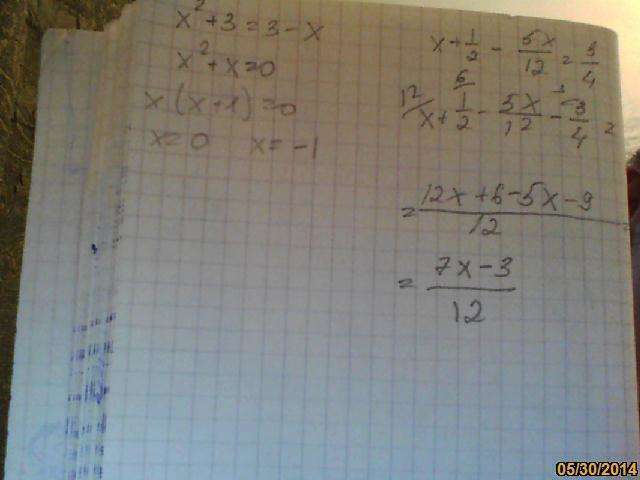 x² + 3 = 3 - x
x² + x = 0
x (x + 1) = 0
x = 0 x = -1
x + 1/2 - 5x/12 = 3/4
12/ x + 6/ 1/2 - 5x/12 - 3/ 3/4 =
= (12x + 6 - 5x - 9)/12
= (7x - 3)/12
05/30/2014